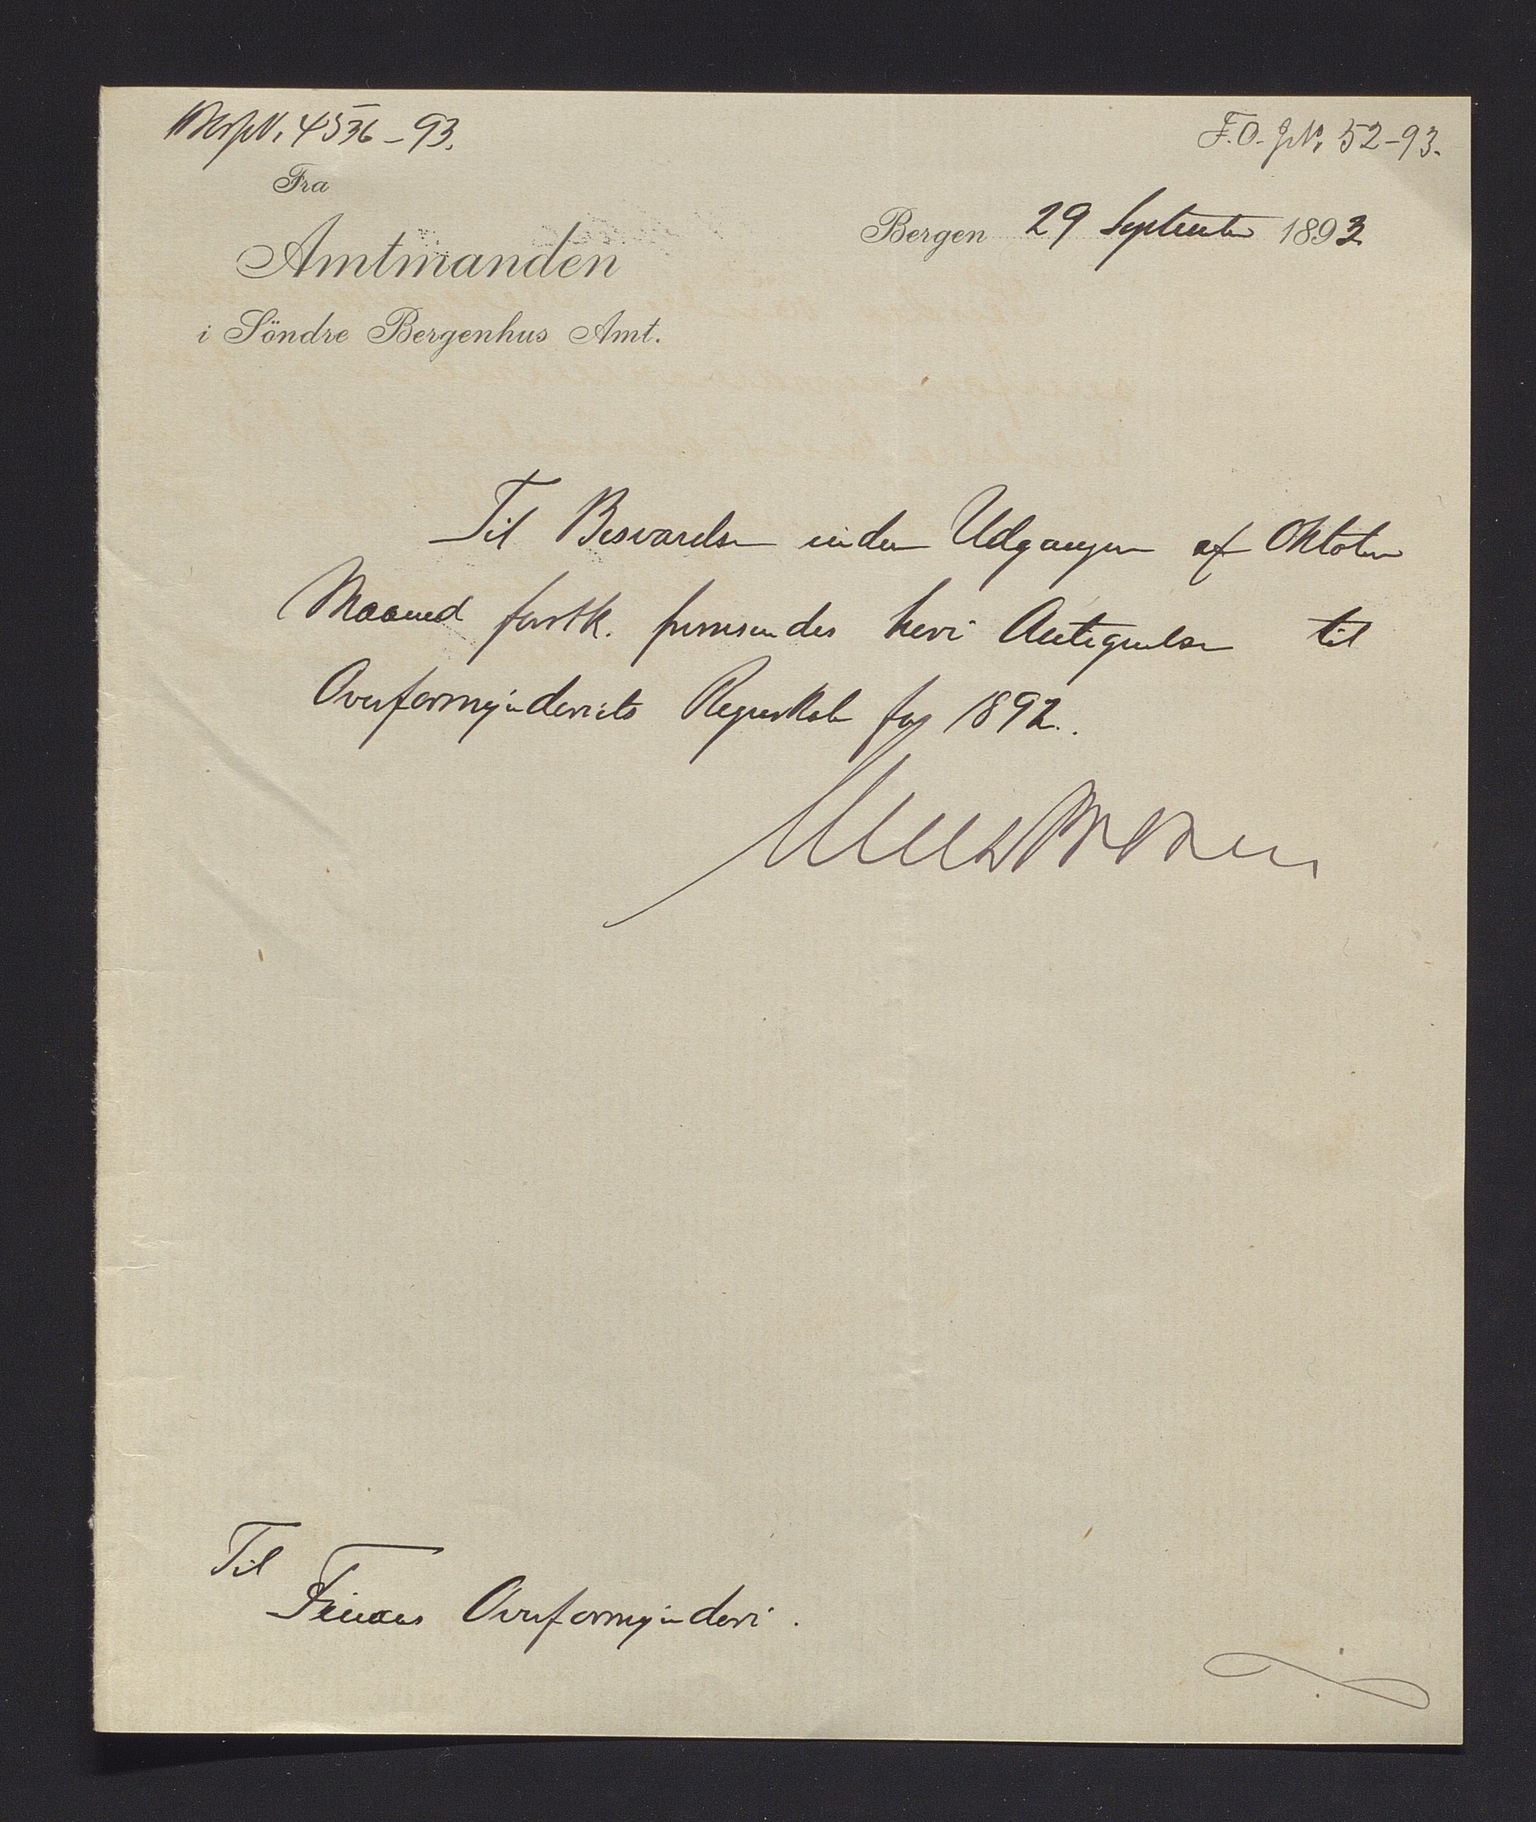 4536-93.
F. O. JN. 52-93.
Fra
Amtmanden
i Söndre Bergenhus Amt.
Bergen 29 September 1893
Til Besvarelse inden Udgangen af Oktober
Maaned førstk. fremsendes hervi Antegnelser til
Overformynderiets Regnskab for 1892.
Til
Finaas Overformynderi.